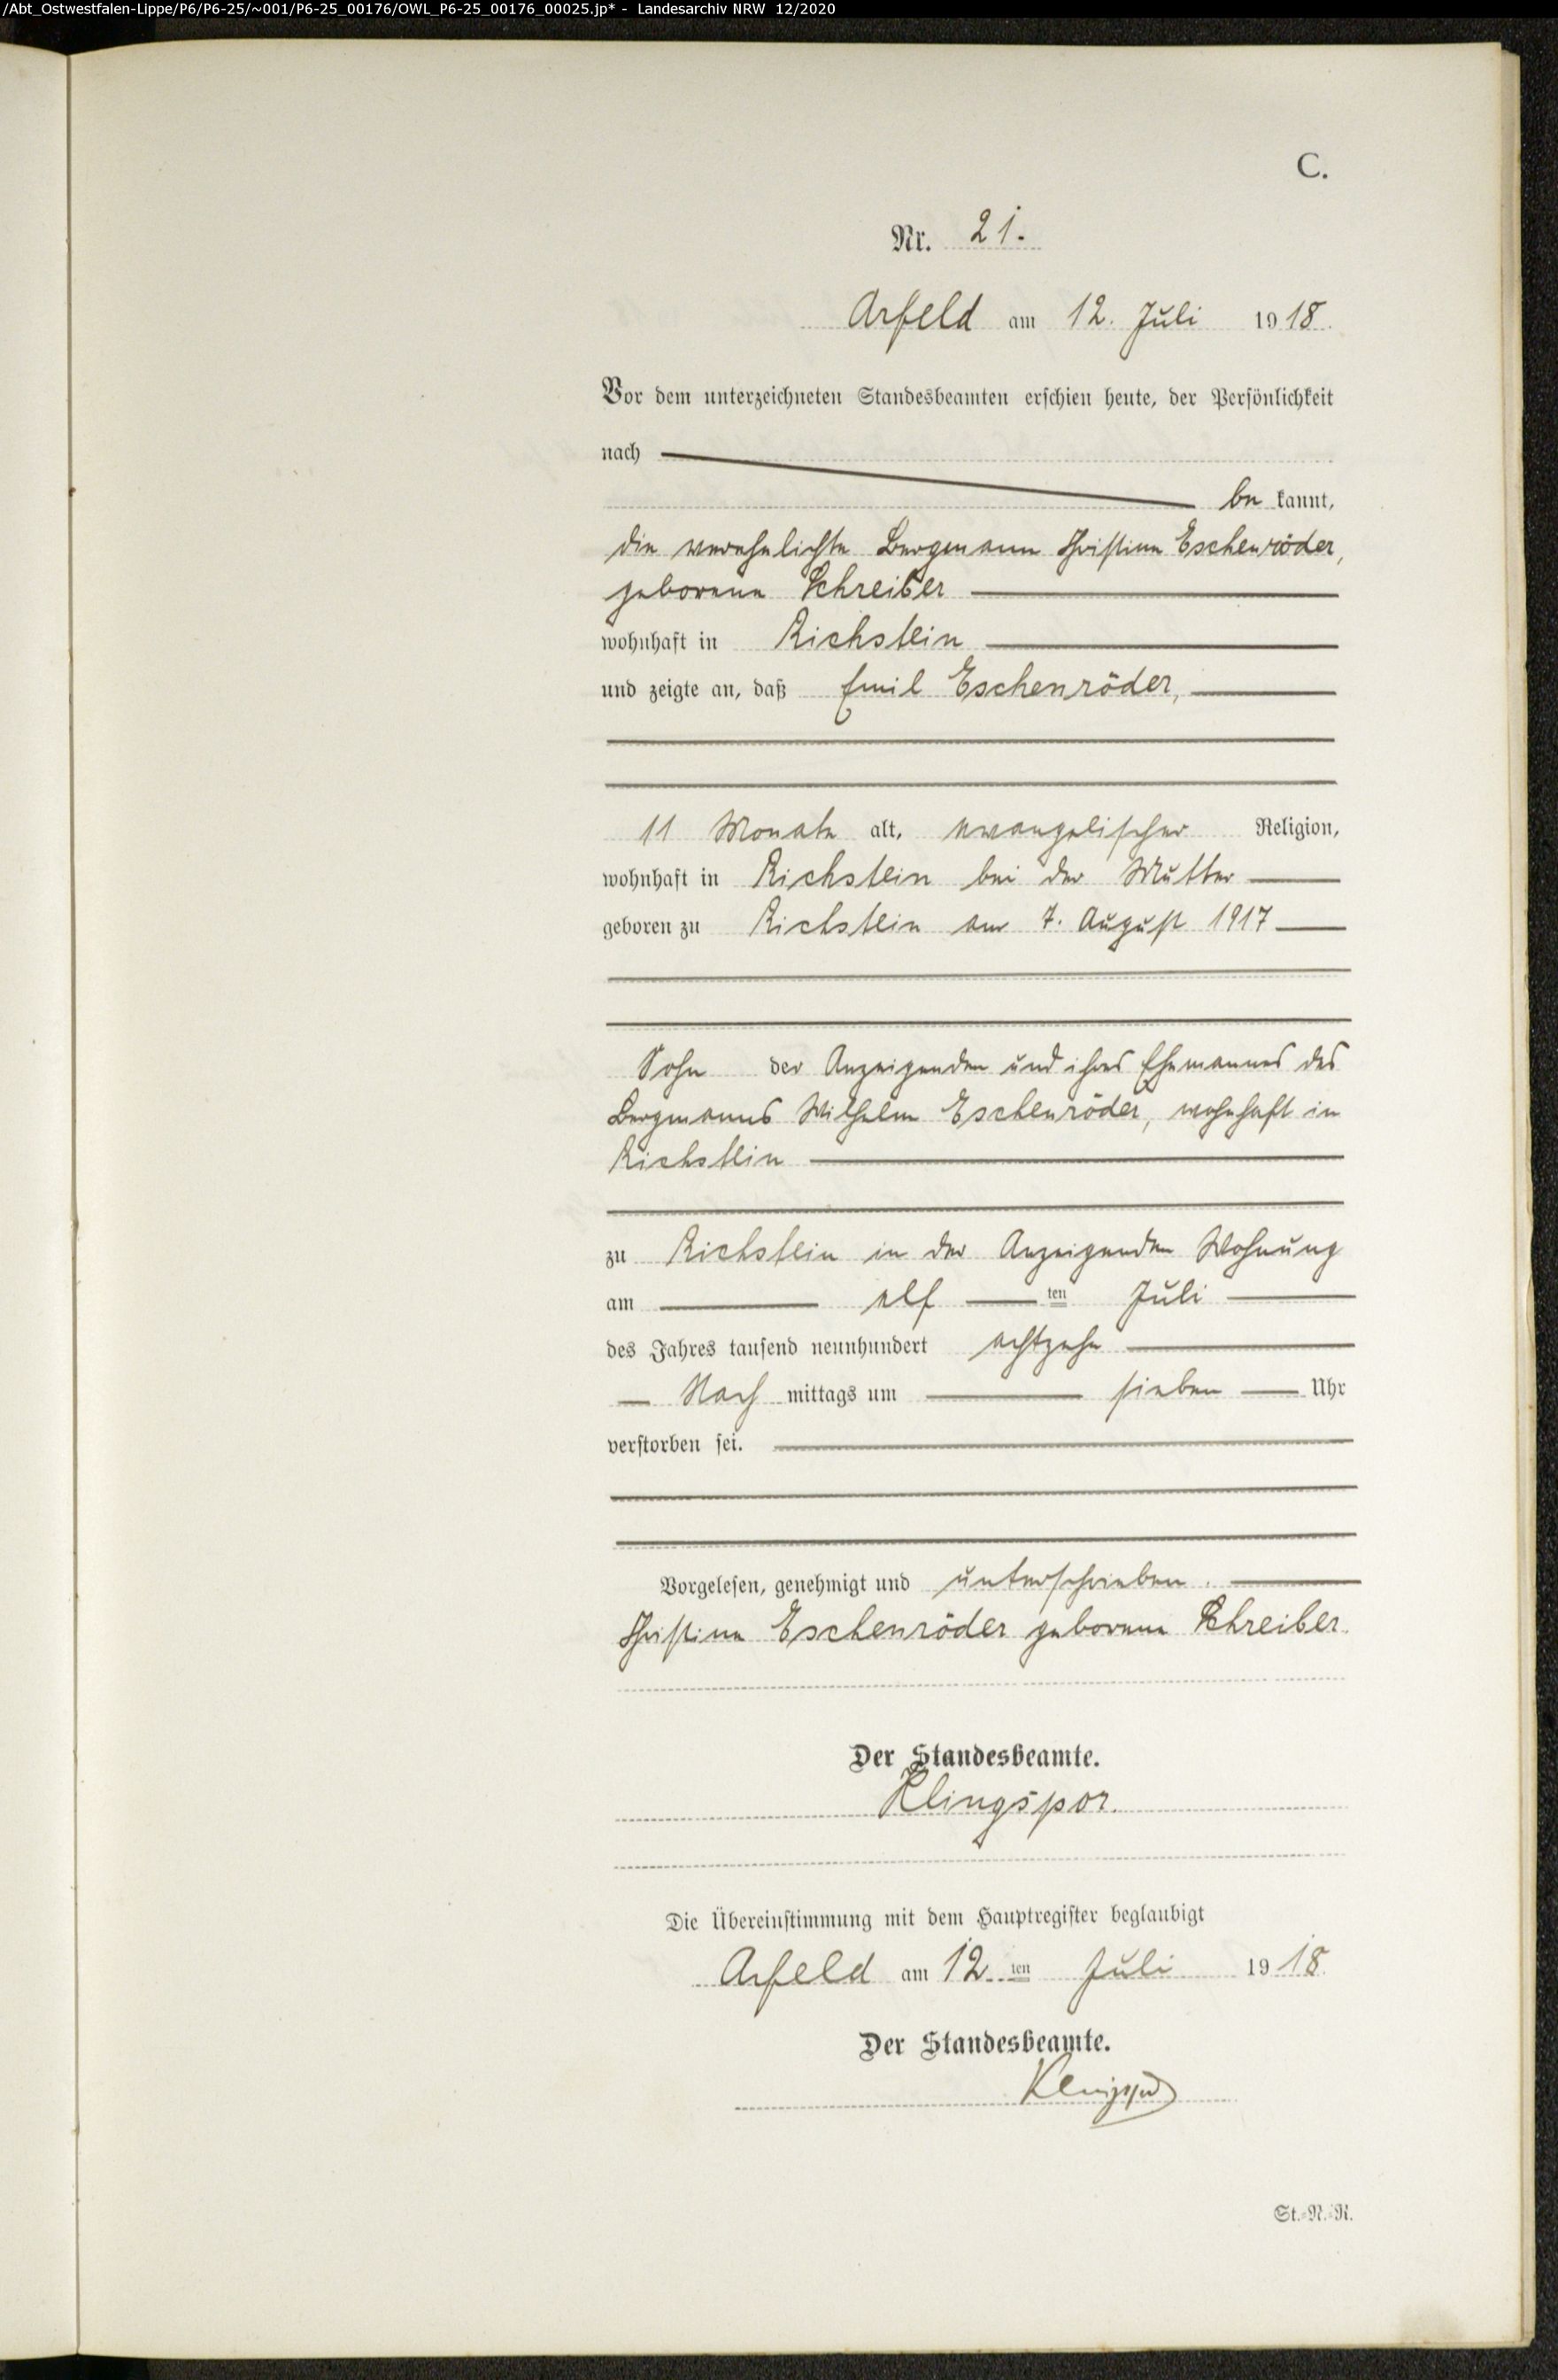 /Abt_Ostwestfalen-Lippe/P6/P6-25/~001/P6-25_00176/OWL_P6-25_00176_00025.jp* - Landesarchiv NRW 12/2020
C.
Nr. 21.
Arfeld am 12. Juli 1918.
Vor dem unterzeichneten Standesbeamten erschien heute, der Persönlichkeit
nach
be kannt,
die verehelichte Bergmann Christine Eschenröder,
geborene Schreiber
wohnhaft in Richstein
und zeigte an, daß Emil Eschenröder,
11 Monate alt, evangelischer Religion,
wohnhaft in Richstein bei der Mutter
geboren zu Richstein am 7. August 1917
Sohn der Anzeigenden und ihres Ehemannes des
Bergmanns Wilhelm Eschenröder, wohnhaft in
Richstein
zu Richstein in der Anzeigenden Wohnung
am elf ten Juli
des Jahres tausend neunhundert achtzehn
Nach mittags um sieben Uhr
verstorben sei.
Vorgelesen, genehmigt und unterschrieben.
Christine Eschenröder geborene Schreiber.
Der Standesbeamte.
Klingspor.
Die Übereinstimmung mit dem Hauptregister beglaubigt
Arfeld am 12. ten Juli 1918.
Der Standesbeamte.
Klingspor
St.=N.=R.